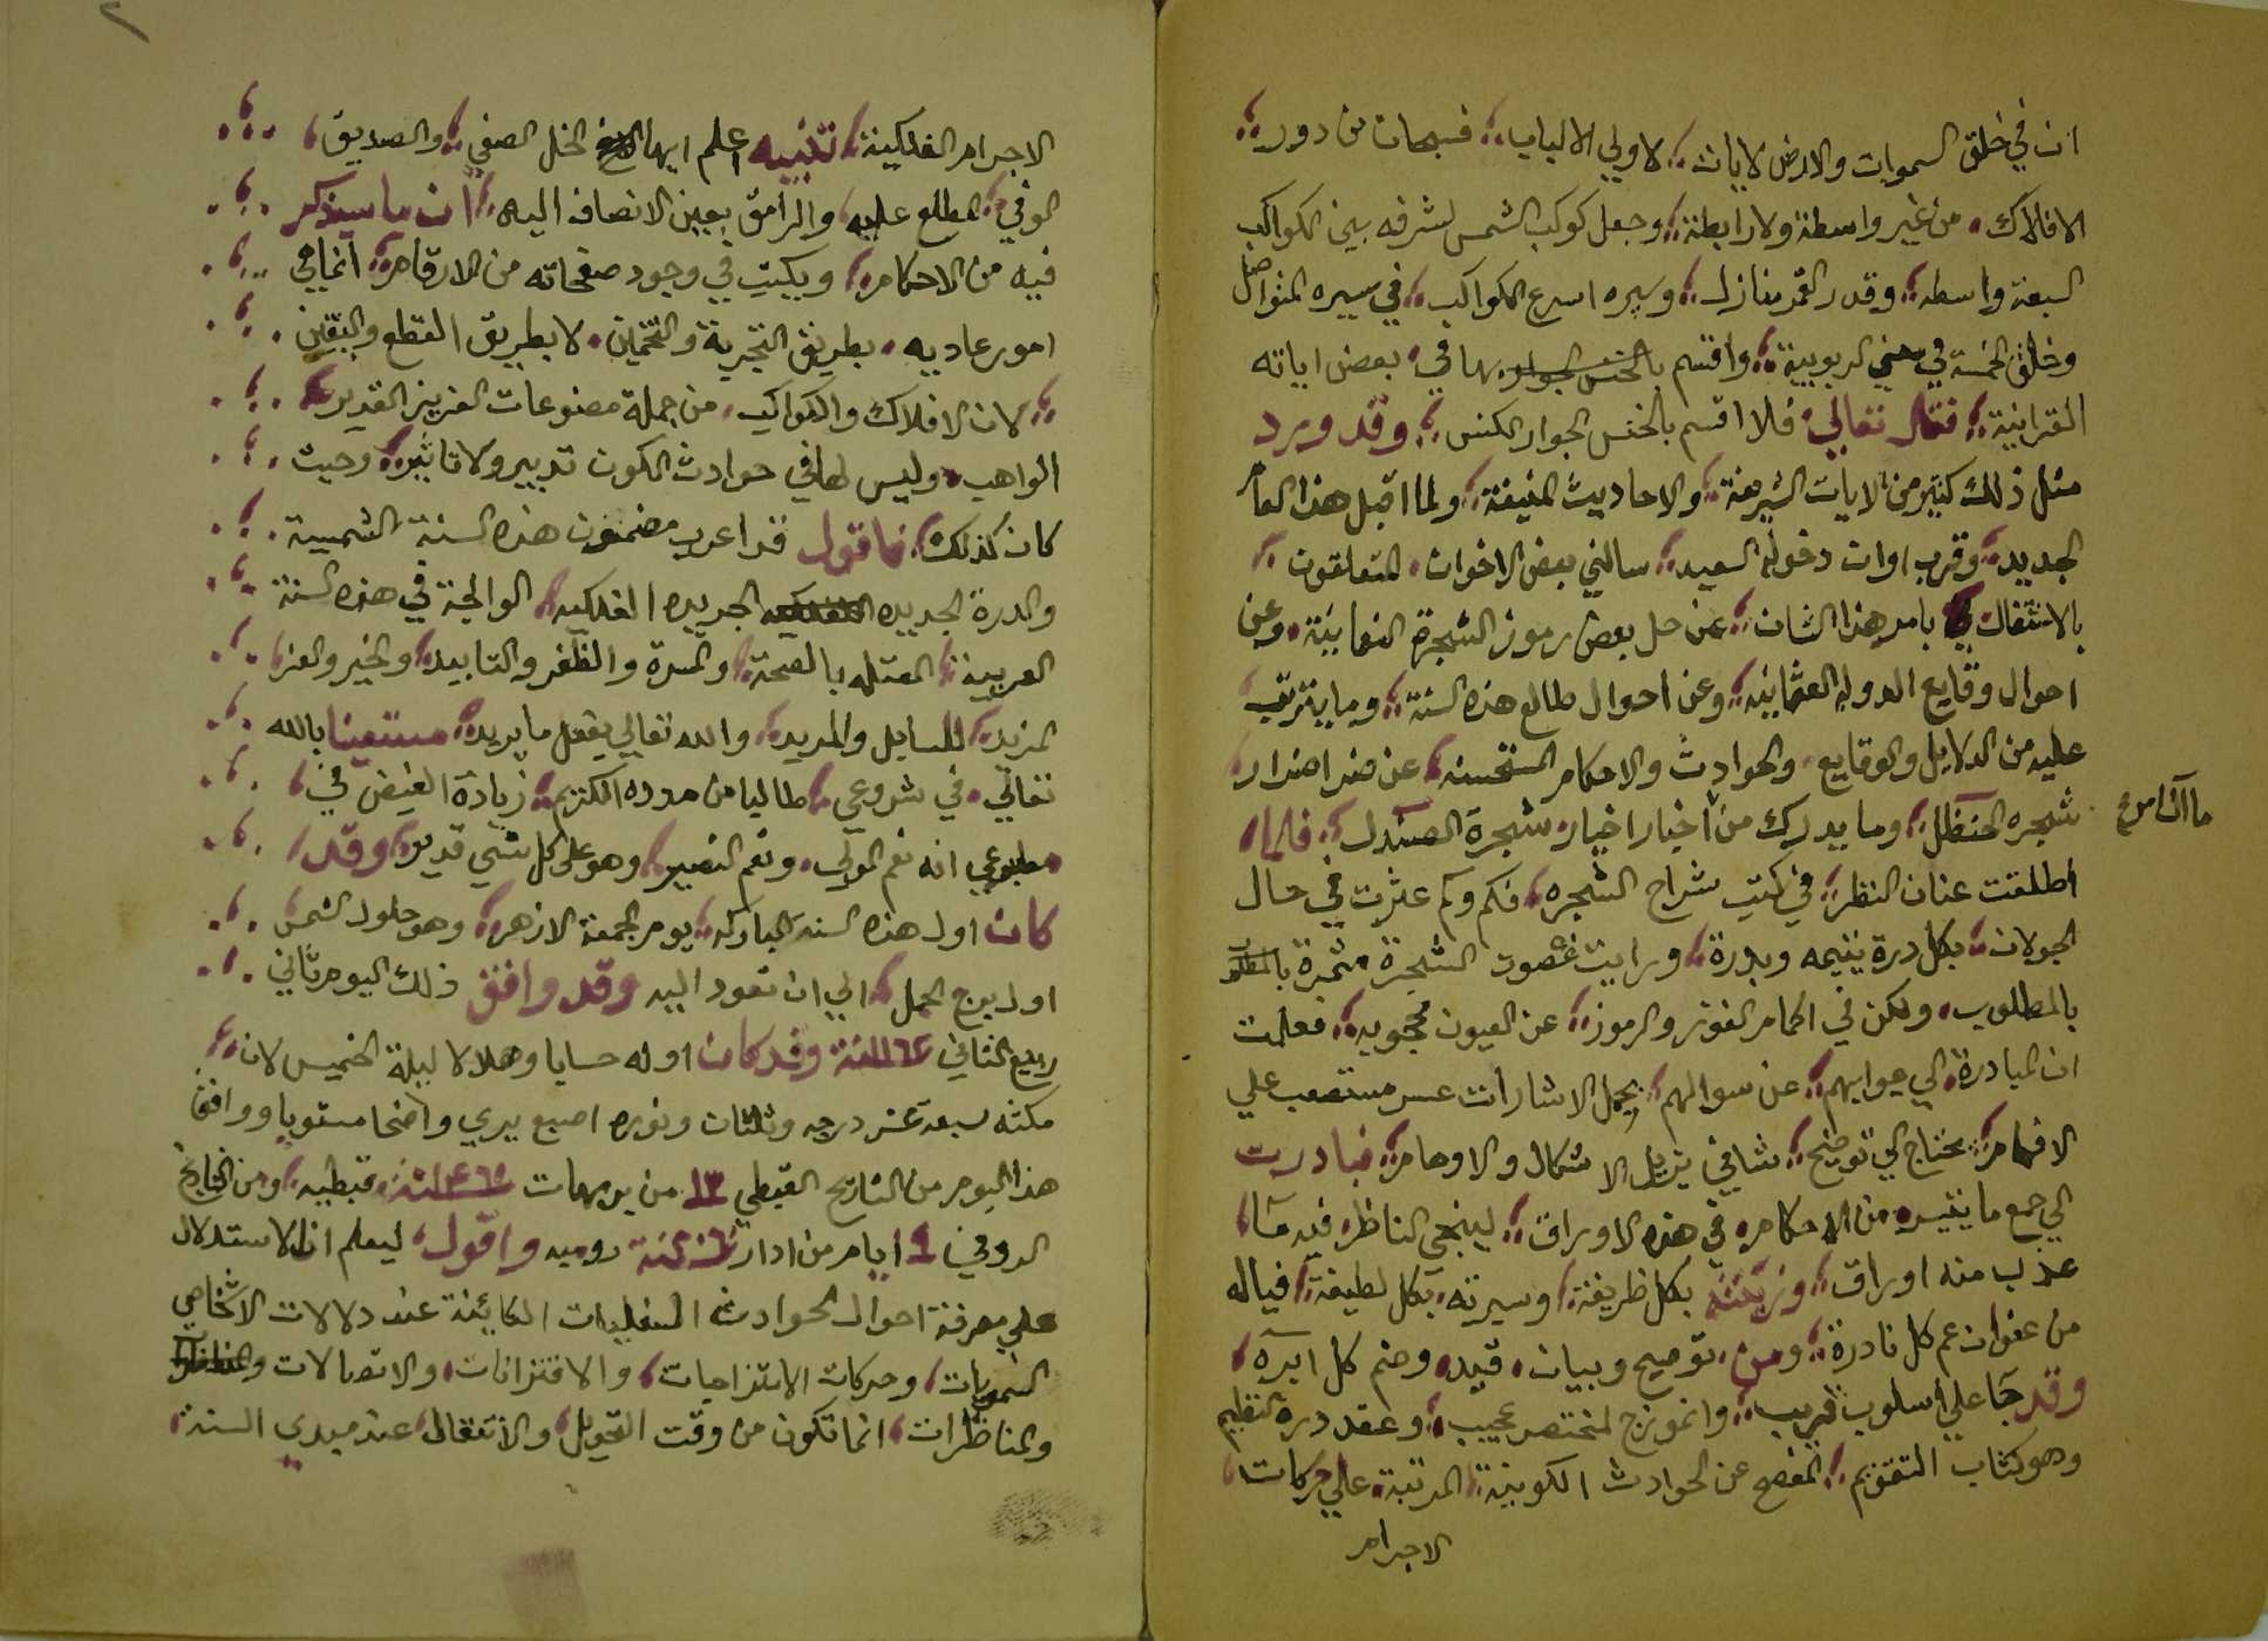 ان في خلق السموات والارض لايات؛ لاولي الالباب؛ فسبحان من دور؛
الافلاك، من غير واسطة ولا رابطة؛ وجعل كوكب الشمس لشرفه بين الكواكب
السبعة واسطه؛ وقدر القمر منازل؛ وسيره اسرع الكواكب؛ في سيره المتواصل
وخلق الخمسة في معني الربوبية؛ واقسم بها في، بعض اياته
القرانية؛ فقال تعالي؛ فلا اقسم بالخنس الجوار الكنس؛ وقد ورد
مثل ذلك كثير من الايات الشريفة؛ والاحاديث المنيفة؛ ولما اقبل هذا العام
الجديد؛ وقرب اوان دخوله السعيد؛ سالني بعض الاخوان، المتعلقون؛
بالاشتغال بامر هذا الشان؛ عن حل بعض رموز الشجرة النعمانية، وعن
احوال وقايع الدولة العثمانيه؛ وعن احوال طالع هذه السنة؛ وما يترتب
عليه من الدلايل والوقايع، والحوادث والاحكام المستحسنه؛ عن ضد اضدار
شجره الحنظل؛ وما يدرك من اخبار اخيار شجرة الصندل؛ فلما
اطلقت عنان النظر؛ في كتب شراح الشجره؛ فكم وكم عثرت في حال
الجولان؛ بكل درة يتيمه وبدرة؛ ورايت غصون الشجرة مثمرة
بالمطلوب، ولكن في اكمام الغوز والرموز؛ عن العيون محجوبه؛ فعلمت
ان المبادرة الي جوابهم؛ عن سوالهم؛ بحمل الاشارات عسر مستصعب علي
الافهام؛ يحتاج الي توضيح؛ شافي يزيل الاشكال والاوهام؛ فبادرت
الي جمع ما تيسر، من الاحكام، في هذه الاوراق؛ ليجني الناظر فيه ما
عذب منه اوراق؛ وزينته بكل ظريفة؛ وسيرته، بكل لطيفة؛ فياله
من عنوان عم كل نادرة؛ ومن، توضيح وبيان، قيد، وضم كل ابره،
وقد جا علي اسلوب غريب؛ وانموزج لمختصر عجيب؛ وعقد درة التنظيم
وهو كتاب التقويم؛ المفصح عن الحوادث الكونية؛ المرتبة، علي حركات،
الاجرام
الاجرام الفلكية؛ تنبيه اعلم ايها الخل الصفي؛ والصديق،
الوفي؛ المطلع عليه، والرامق بعين الانصاف اليه؛ ان ما سيذكر
فيه من الاحكام؛ ويكتب في وجود صفحاته من الارقام؛ انما هي
امور عاديه، بطريق التجربة والتخمين، لا بطريق القطع واليقين
؛ لان الافلاك والكواكب، من جملة مصنوعات العزيز القدير
الواهب، وليس لها في حوادث الكون تدبير ولا تاثير؛ وحيث
كان كذلك؛ فاقول قد اعرب مضمون هذه السنة الشمسية
والدرة الجديده الجريده الفلكيه؛ الوالجة في هذه السنة
العربية؛ المقتله بالصحة؛ والمسرة والظفر والتابيد؛ والخير والعز؛
المزيد؛ للسايل والمريد؛ والله تعالي يفعل ما يريد؛ مستعينا بالله
تعالي، في شروعي؛ طالبا من مدده الكتريم؛ زيادة الفيض في،
مطبوعي انه نعم المولي، ونعم النصير؛ وهو علي كل شي قدير؛ وقد،
كان اول هذه السنه المباركه؛ يوم الجمعة الازهر؛ وهو حلول الشمس
اول برج الحمل؛ الي ان تعود اليه وقد وافق ذلك اليوم ثاني
ربيع الثاني ١١٦٤ سنة وقد كان اوله حسابا وهلالا ليلة الخميس لان؛
مكثه سبعة عشر درجه وثلثان ونوره اصبع يري واضحا مستويا ووافق
هذا اليوم من التاريخ القبطي ١٣ من برمهات ١٤٦٧ سنة قبطيه؛ ومن التاريخ
الرومي ٩ ايام من ادار سنة روميه واقول، ليعلم ان الاستدلال
علي معرفة احوال الحوادث السفليات الكائنة عند دلالات الاشخاص
السمويات، وحركات الامتزاجيات، والاقترانات، والاتصالات
والمناظرات، انما تكون من وقت التحويل، والانتقال، عند مبدي السنة،